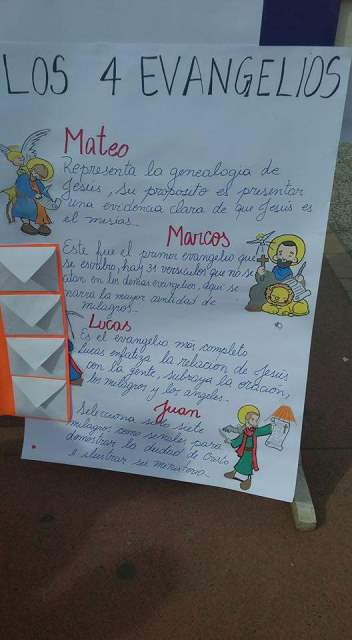 LOS 4 EVANGELIOS
Mateo
Representa la genealogia de
Jesús, su proposito es presentar
una evidencia clara de que Jesús es
el mesias.
Marcos
Este fue el primer evangelio que
se escribio, hay 31 versiculos que no se
citan en los demas evangelios, aqui se
narra la mayor cantidad de
milagros.
Lucas
Es el evangelio más completo
Lucas enfatiza la relacion de Jesús
con la gente, subraya la oracion,
los milagros y los angeles.
Juan
Selecciona solo siete
milagros como señales para
demostrar la deidad de Cristo
e ilustrar su